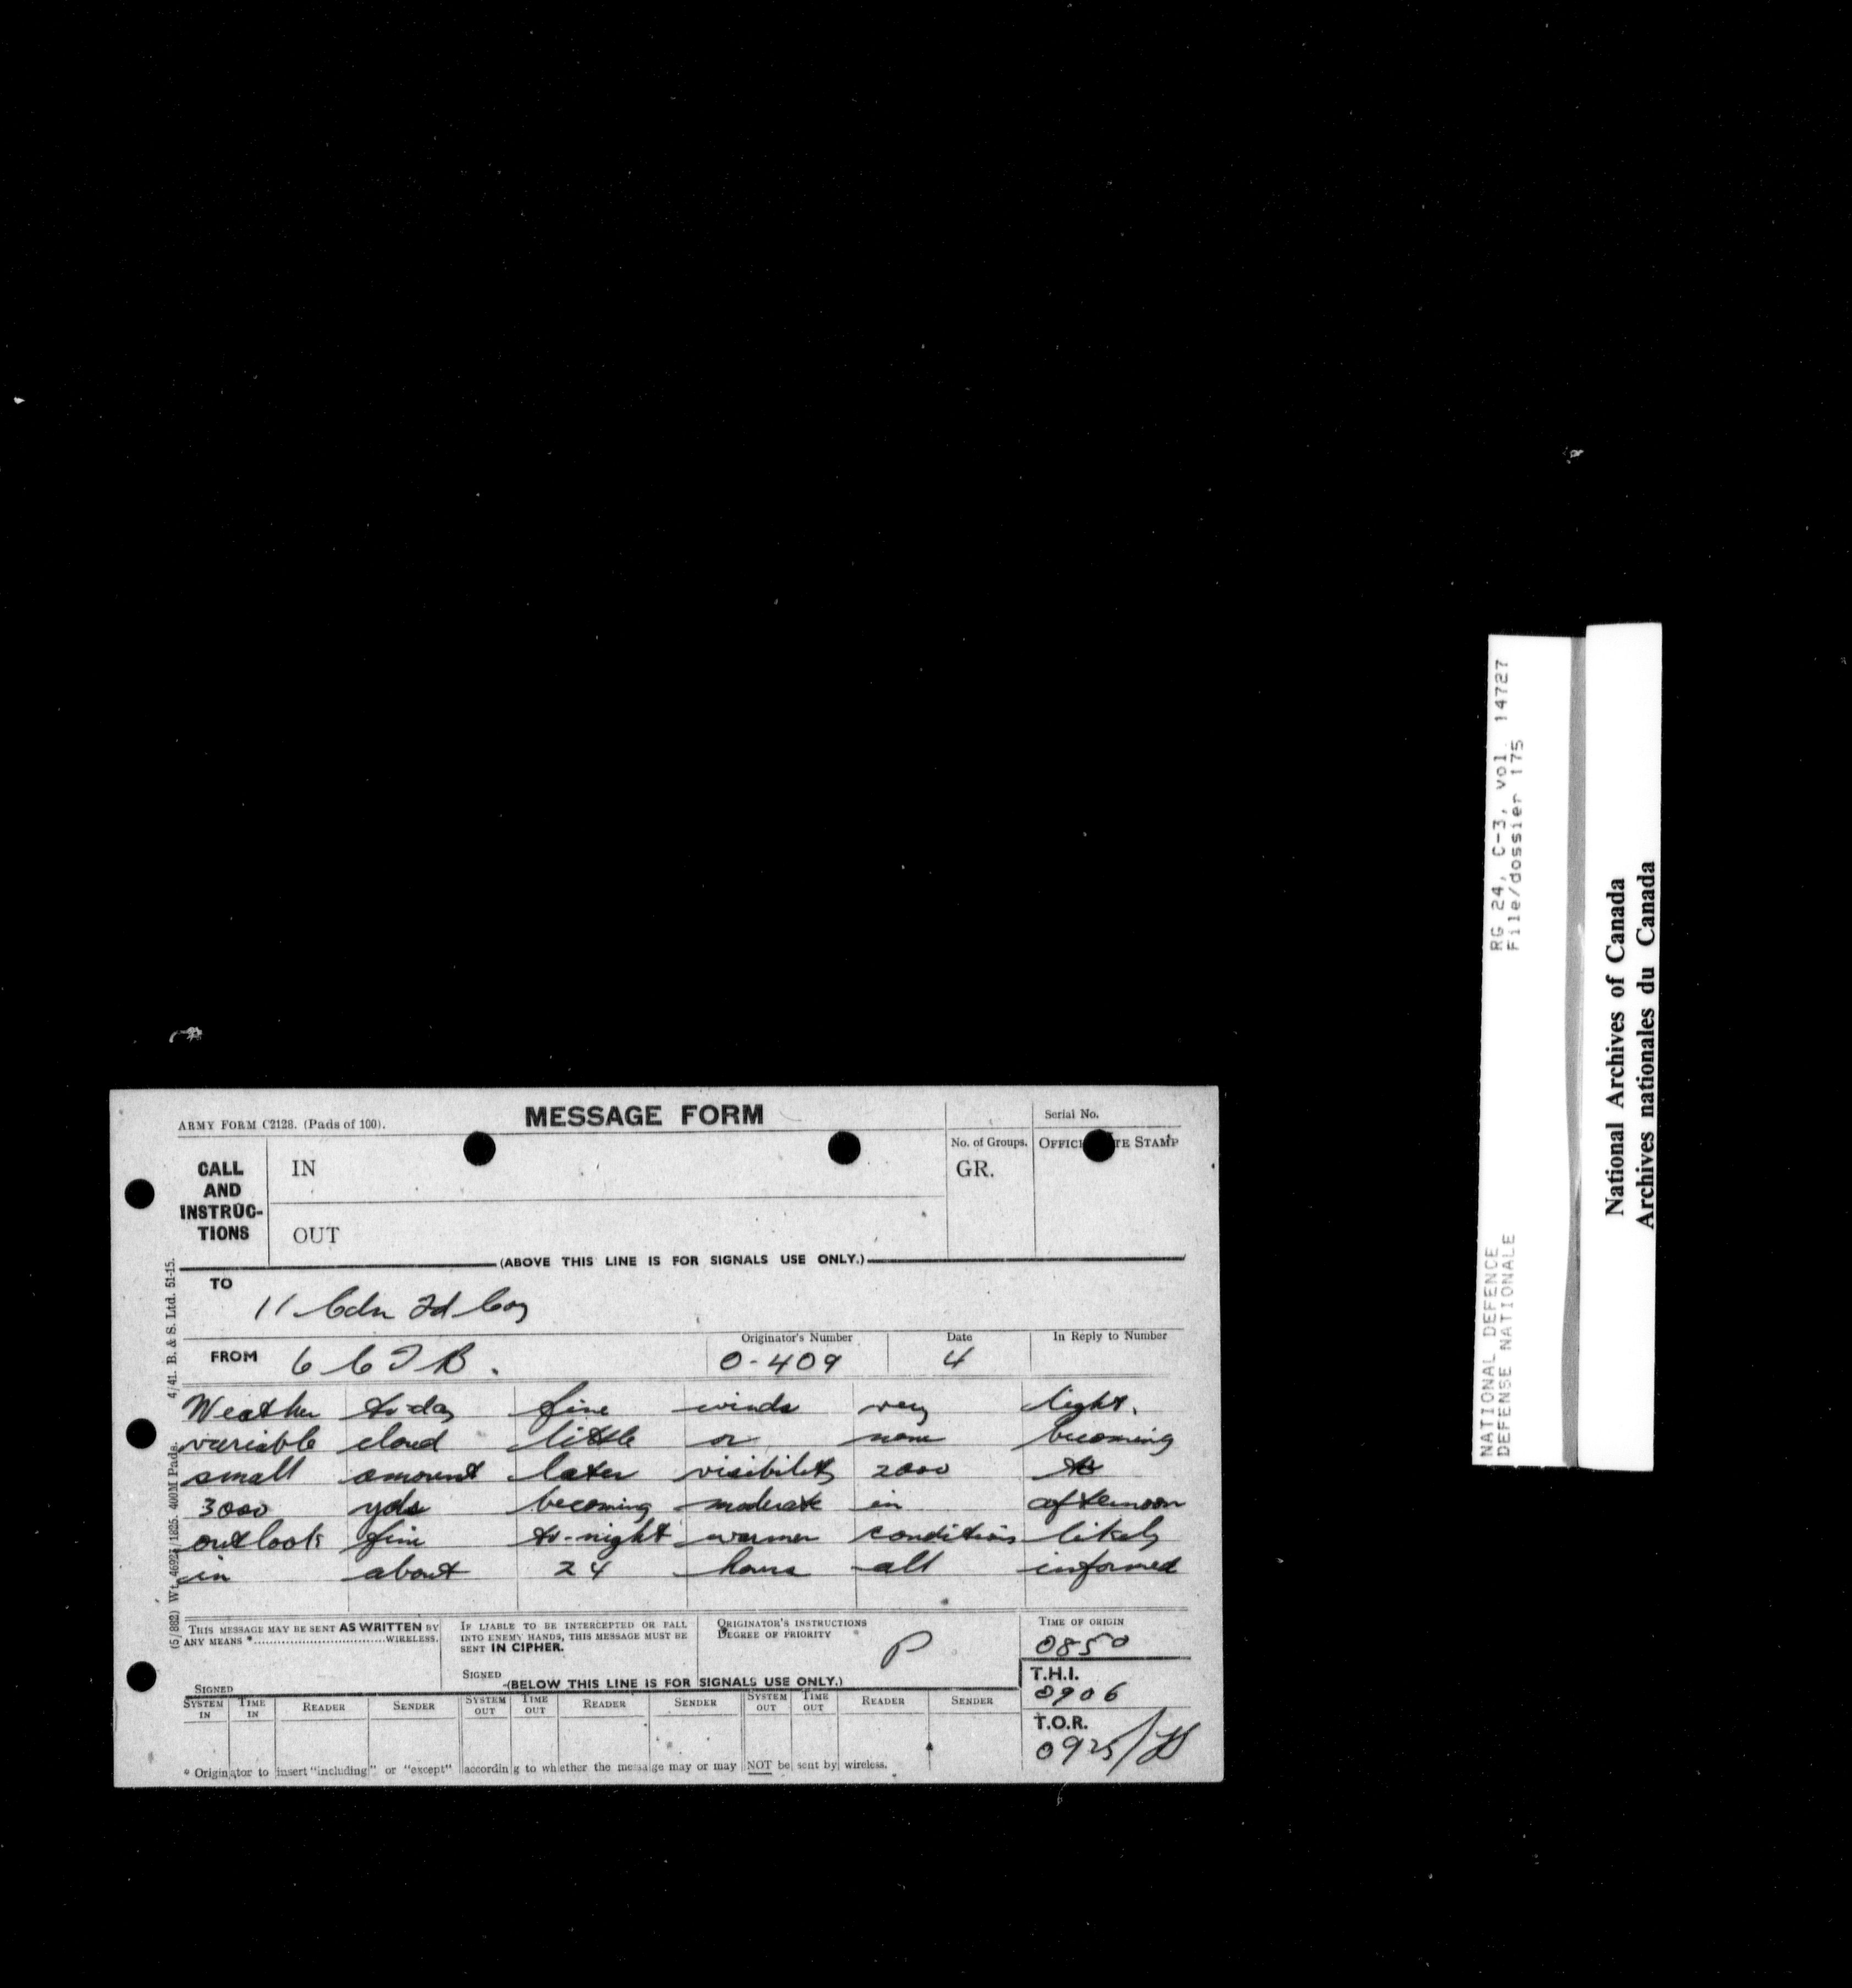 ARMY FORM C2128. (Pads of 100).
MESSAGE FORM
Serial No.
CALL AND INSTRUC-TIONS
IN
No. of Groups.
GR.
OFFICE DATE STAMP
OUT
(ABOVE THIS LINE IS FOR SIGNALS USE ONLY.)
TO
11 Cdn Fd Coy
FROM 6 C I B.
Originator's Number
0-409
Date
4
In Reply to Number
Weather to-day fine winds very light.
variable cloud little or none becoming
small amount later visibility 2000 to
3000 yds becoming moderate in afternoon
outlook fine to-night warmer conditions likely
in about 24 hours all informed
THIS MESSAGE MAY BE SENT AS WRITTEN BY
ANY MEANS * WIRELESS.
SIGNED
IF LIABLE TO BE INTERCEPTED OR FALL
INTO ENEMY HANDS, THIS MESSAGE MUST BE
SENT IN CIPHER.
SIGNED
ORIGINATOR'S INSTRUCTIONS
DEGREE OF PRIORITY
P
TIME OF ORIGIN
0850
T.H.I.
0906
T.O.R.
0925
(BELOW THIS LINE IS FOR SIGNALS USE ONLY.)
SYSTEM IN TIME IN READER SENDER SYSTEM OUT TIME OUT READER SENDER SYSTEM OUT TIME OUT READER SENDER
* Originator to insert "including" or "except" according to whether the message may or may NOT be sent by wireless.
(5/882) Wt. 46925/1825. 400M Pads. 4/41. B. & S. Ltd. 51-15.
NATIONAL DEFENCE RG 24, C-3, vol. 14727
DEFENSE NATIONALE File/dossier 175
National Archives of Canada
Archives nationales du Canada